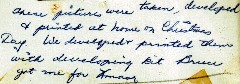 These pictures were taken, developed
& printed at home on Christmas
Day. We developed & printed them
with developing kit Bruce
got me for Xmas